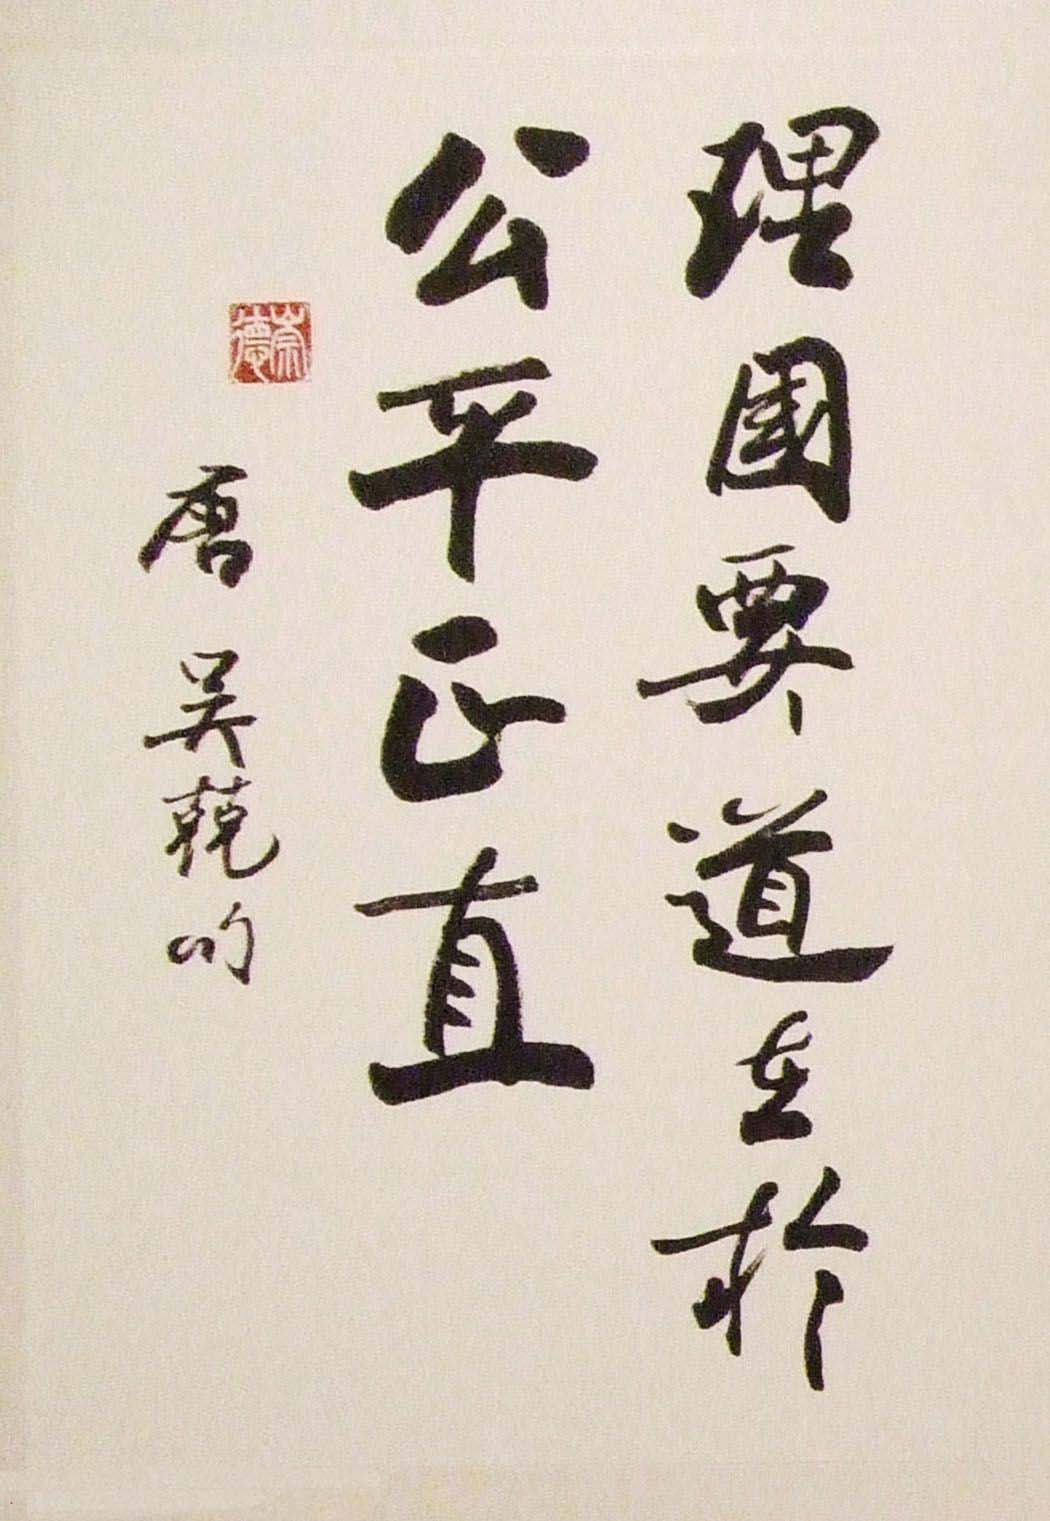 理國要道在於
公平正直
唐 吳兢句
崇德